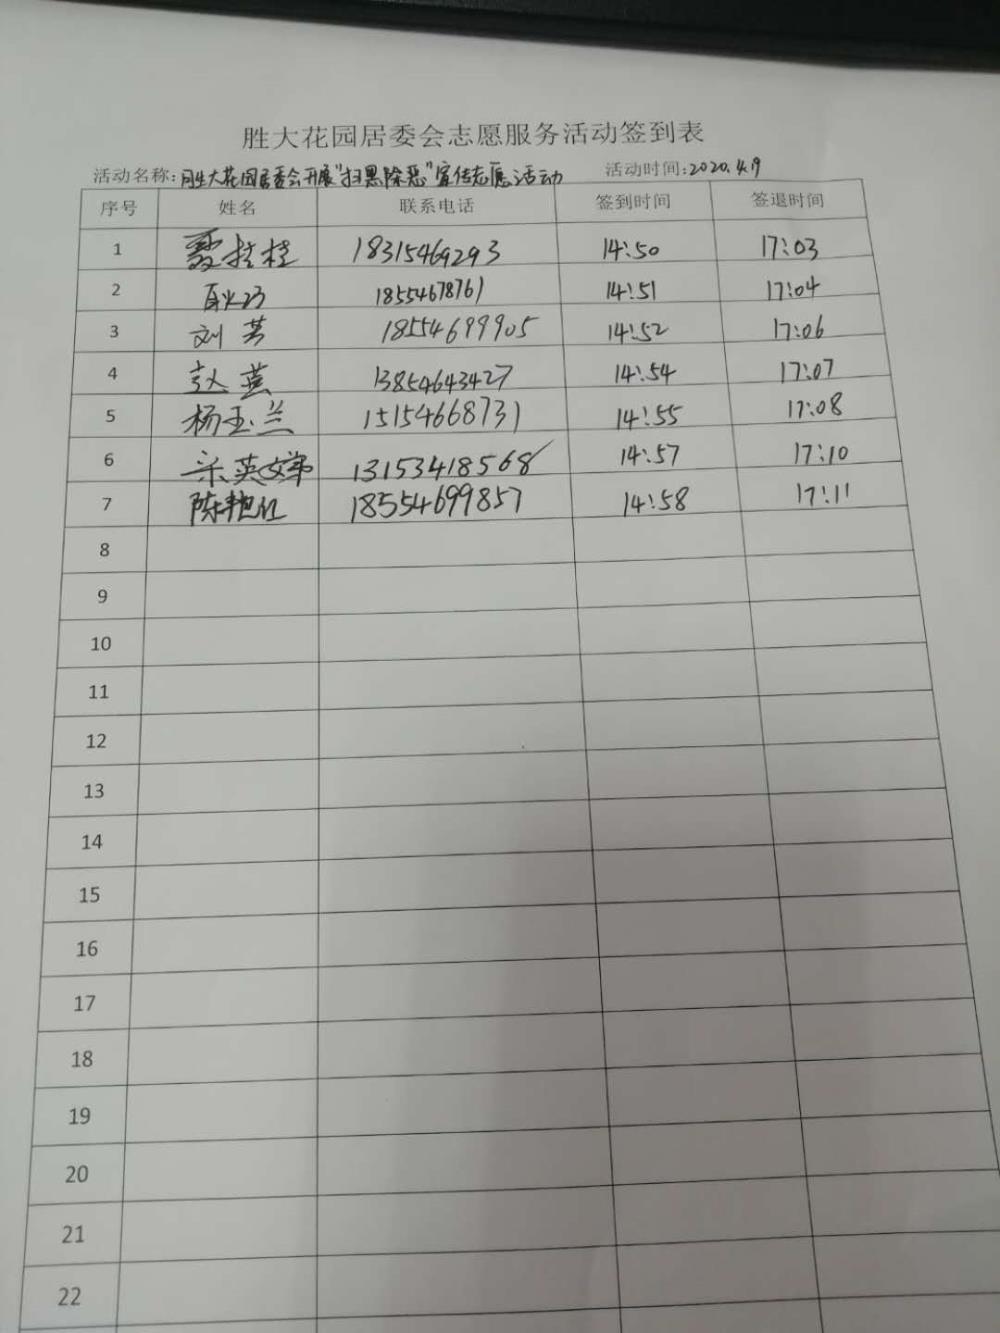 胜大花园居委会志愿服务活动签到表
活动名称:胜大花园居委会开展"扫黑除恶"宣传志愿活动 活动时间:2020.4.9
序号 姓名 联系电话 签到时间 签退时间
1 桂桂 18315469293 14:50 17:03
2 18554678761 14:51 17:04
3 刘芳 18554699905 14:52 17:06
4 赵燕 13854643427 14:54 17:07
5 杨玉兰 15154668731 14:55 17:08
6 宋英娣 13153418568 14:57 17:10
7 陈艳红 18554699857 14:58 17:11
8
9
10
11
12
13
14
15
16
17
18
19
20
21
22